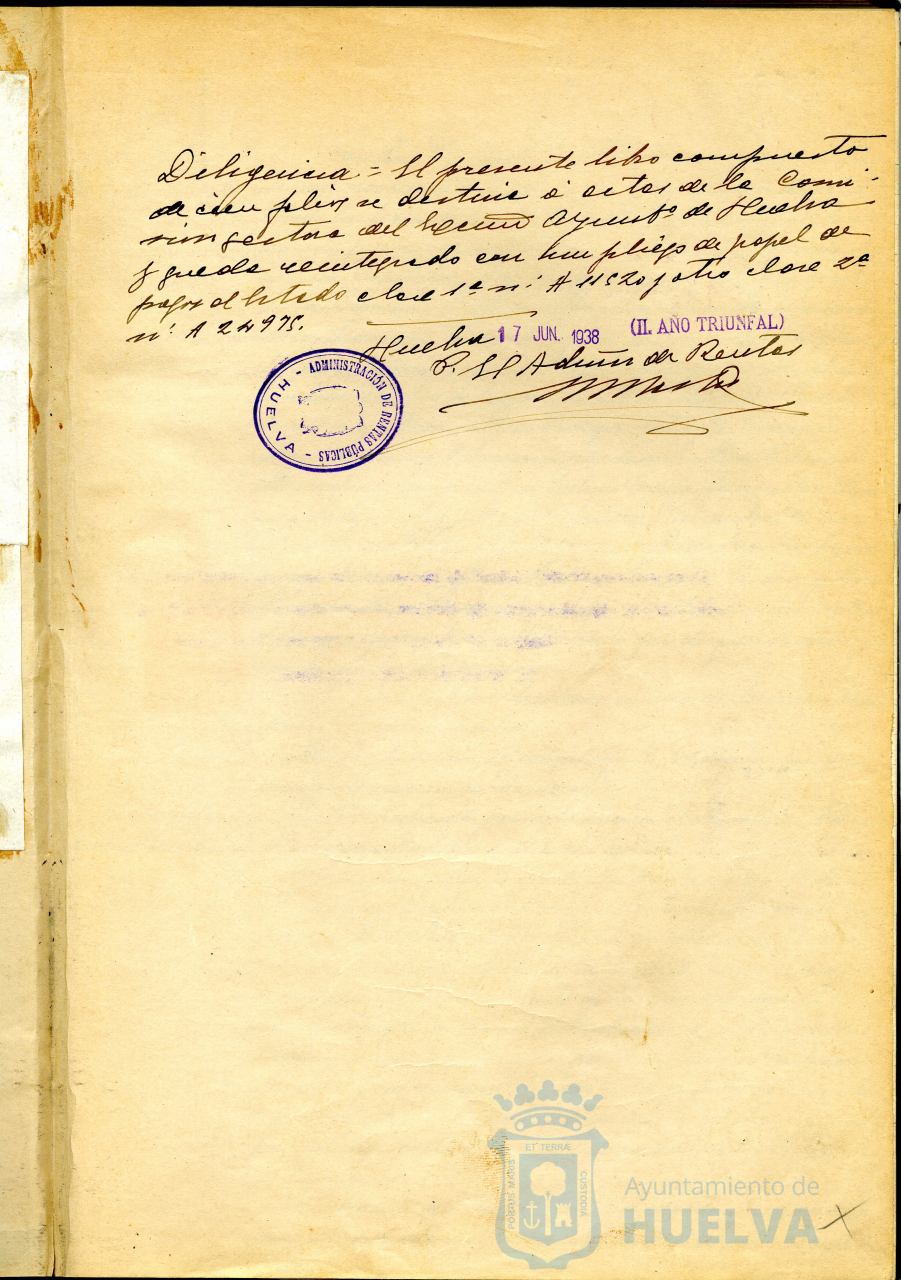 Diligencia = El presente libro compuesto
de cien pliegos se destina á actas de la Comi-
sion gestora del Excmo Ayuntº de Huelva
y queda reintegrado con un pliego de papel de
pagos al Estado clase 1ª nº A 11520 y otro clase 2ª
nº A 24975.
Huelva 17 JUN. 1938 (II. AÑO TRIUNFAL)
P. El Admon de Rentas
ADMINISTRACIÓN DE RENTAS PÚBLICAS
- HUELVA -
ET TERRÆ
PORTUS MARIS
CUSTODIA
Ayuntamiento de
HUELVA